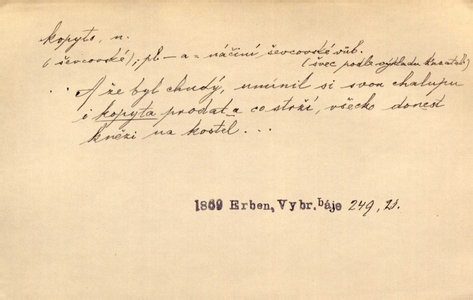 kopyto, n.
(ševcovské); pl. -a = náčiní ševcovské vůb.
(švec podle výkladu
A že byl chudý, umínil si svou chalupu
i kopyta prodat a co strží, všecko donest
knězi na kostel...
1869 Erben, Vybr. báje 249, 21.